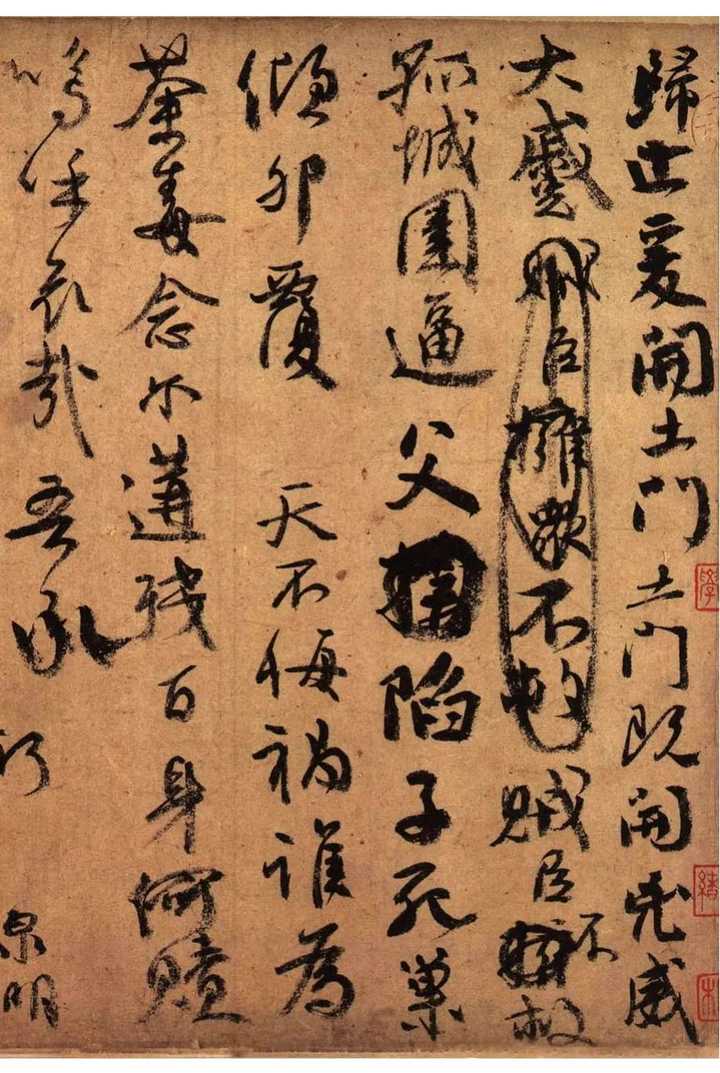 歸止爰開土門土門既開凶威
大蹙賊臣擁眾不救賊臣不救
孤城圍逼父陷子死巢
傾卵覆 天不悔禍誰為
荼毒念爾遘殘百身何贖
嗚呼哀哉吾承
泉明